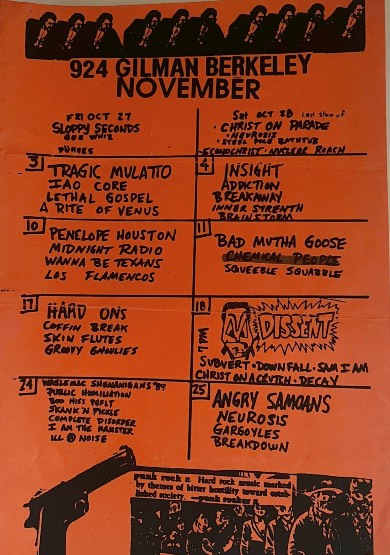 924 GILMAN BERKELEY
NOVEMBER
FRI OCT 27
SLOPPY SECONDS
GEE WHIZ
Sat OCT 28 Last show of
· CHRIST ON PARADE
· NEUROSIS
· STEEL POLE BATHTUB
· ECONOCHRIST · NUCLEAR ROACH
3
TRAGIC MULATTO
IAO CORE
LETHAL GOSPEL
A RITE OF VENUS
4
INSIGHT
ADDICTION
BREAKAWAY
INNER STRENTH
BRAINSTORM
10
PENELOPE HOUSTON
MIDNIGHT RADIO
WANNA BE TEXANS
LOS FLAMENCOS
11
BAD MUTHA GOOSE
CHEMICAL PEOPLE
SQUEEBLE SQUABBLE
17
HARD ONS
COFFIN BREAK
SKIN FLUTES
GROOVY GHOULIES
18
7PM
DISSENT
SUBVERT · DOWNFALL · SAM I AM
CHRIST ON A CRUTCH · DECAY
24
SHENANIGANS '89
PUBLIC HUMILIATION
SKANK 'N PICKLE
COMPLETE DISORDER
I AM THE HAMSTER
ILL @ NOISE
25
ANGRY SAMOANS
NEUROSIS
GARGOYLES
BREAKDOWN
punk rock n. Hard rock music marked
by themes of bitter hostility toward estab-
lished society. —punk rocker n.